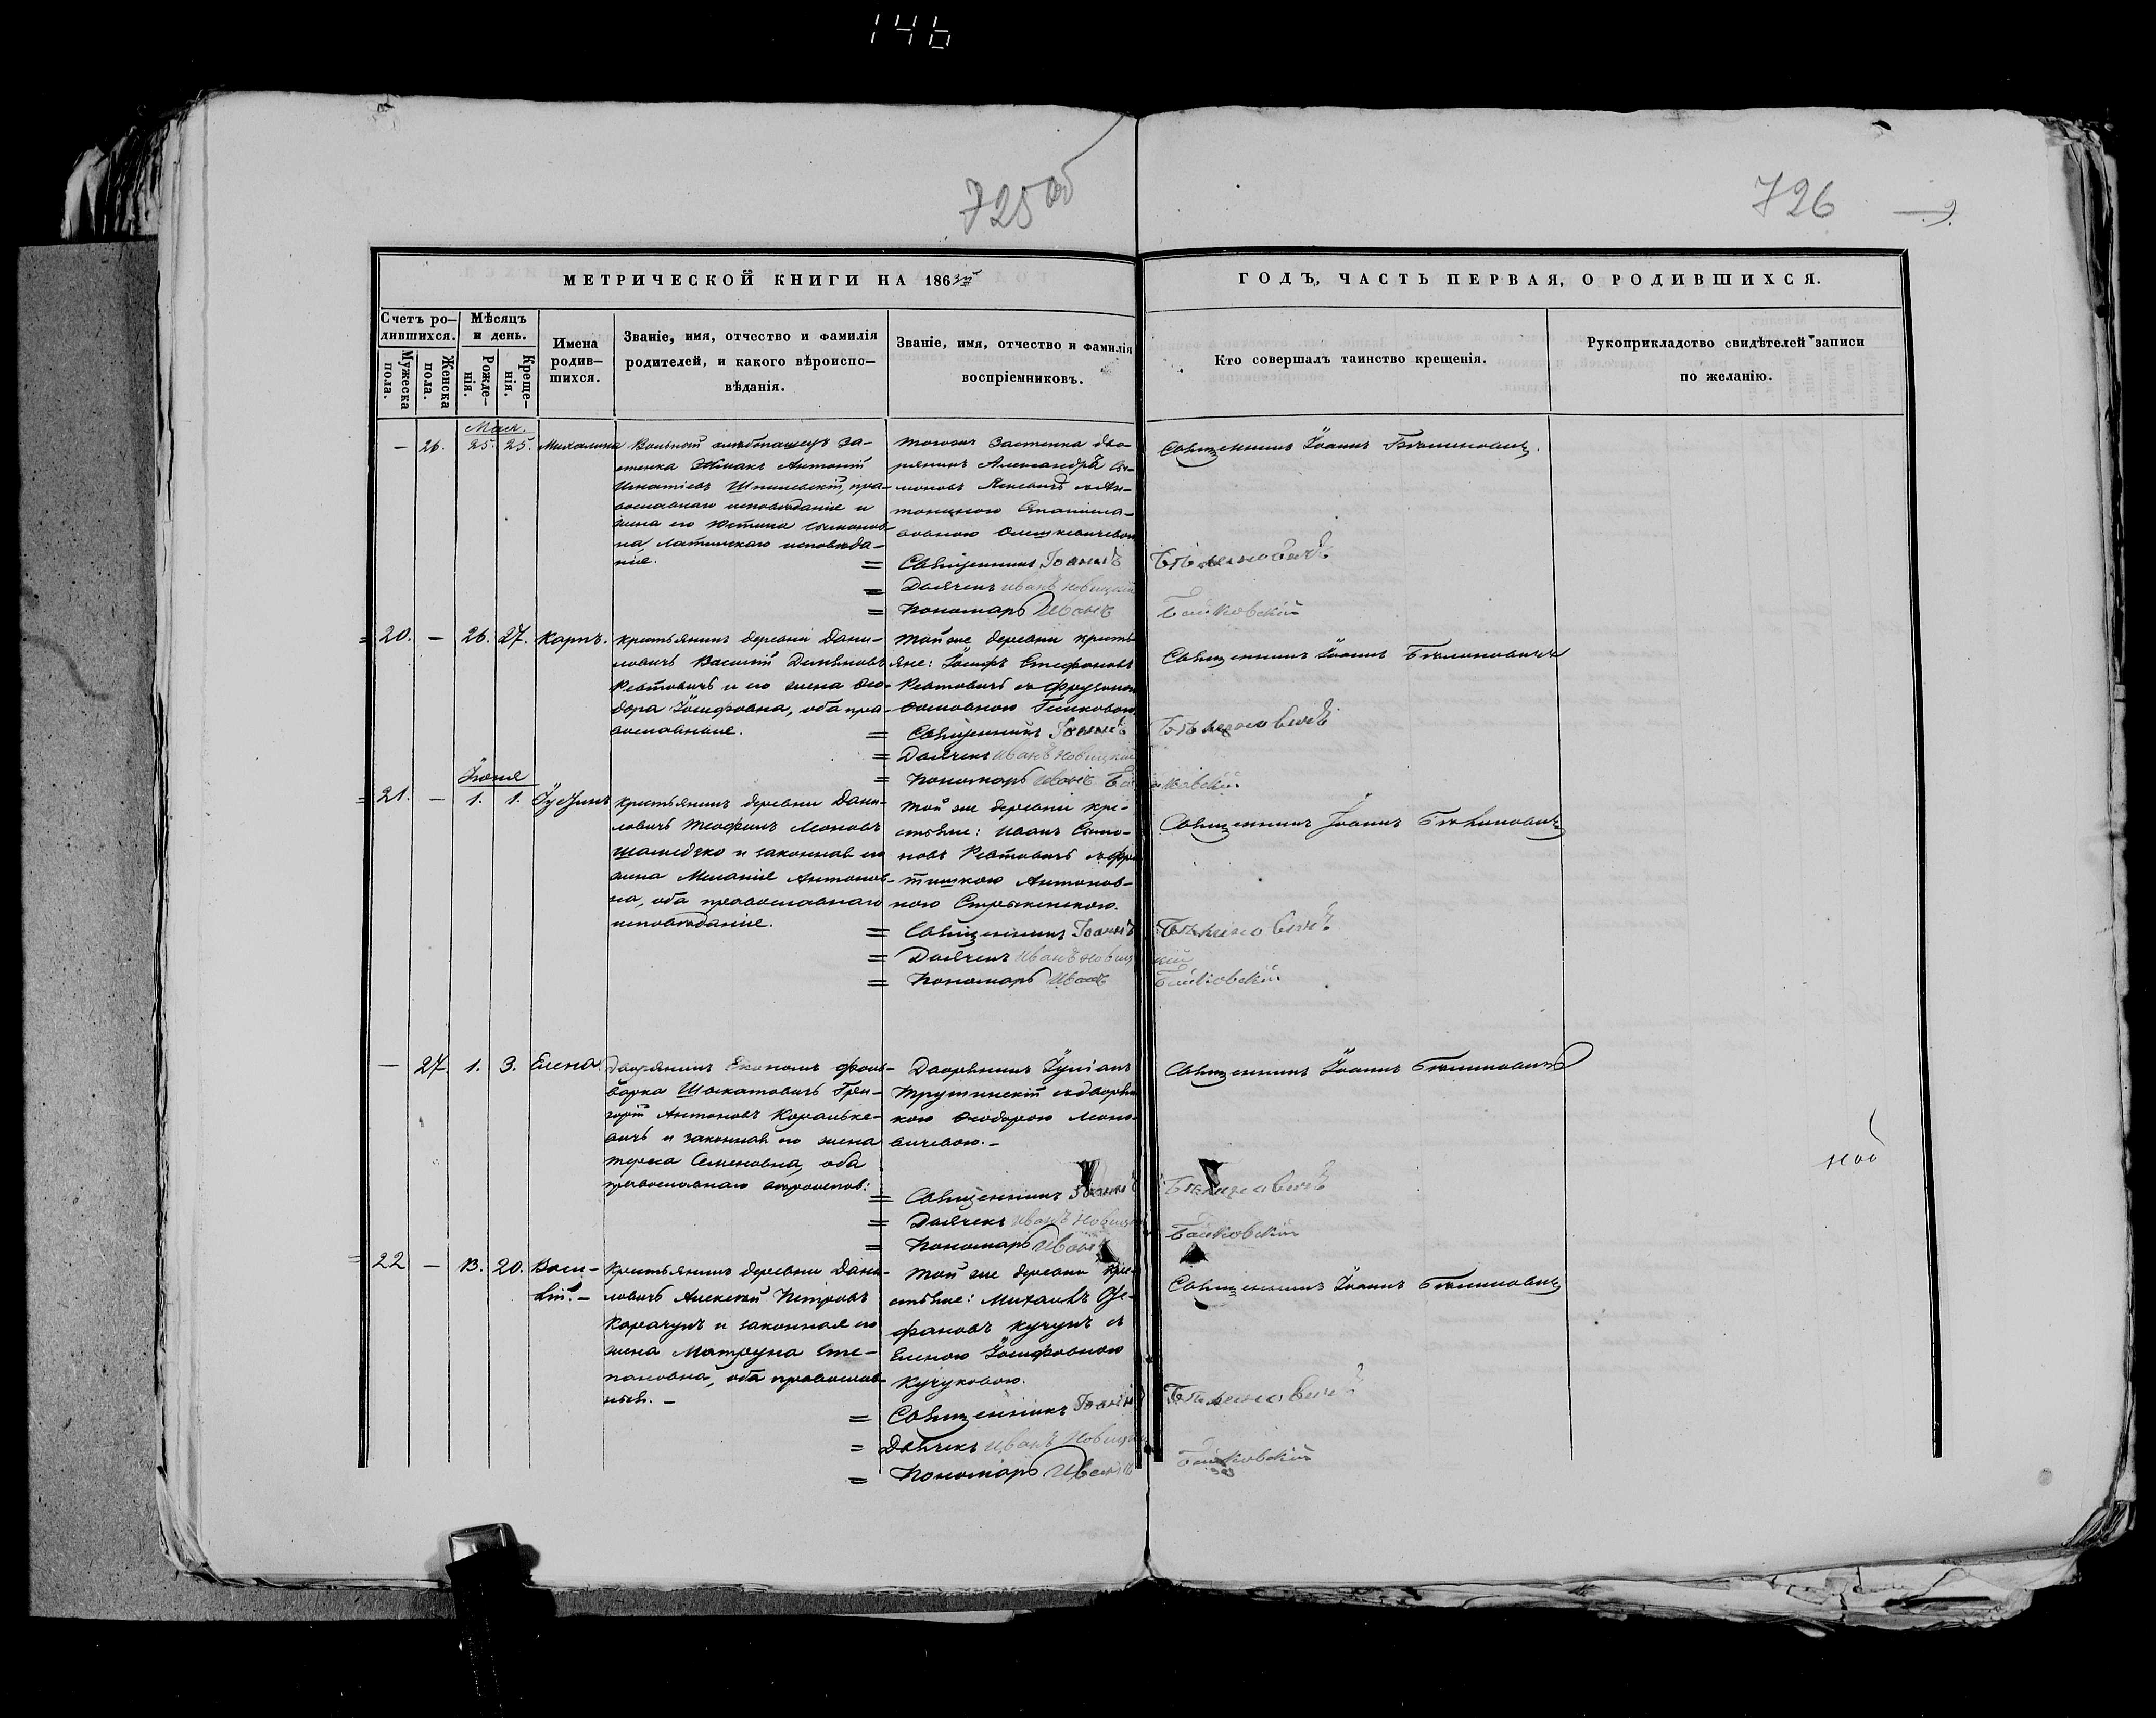 146
725 об
726
МЕТРИЧЕСКОЙ КНИГИ НА 1863й
ГОДЪ, ЧАСТЬ ПЕРВАЯ, О РОДИВШИХСЯ.
Счетъ ро-
дившихся.
Мужеска
пола.
Женска
пола.
Мѣсяцъ
и день.
Рожде-
нія.
Креще-
нія.
Имена
родив-
шихся.
Званіе, имя, отчество и фамилія
родителей, и какого вѣроиспо-
вѣданія.
Званіе, имя, отчество и фамилія
воспріемниковъ.
Кто совершалъ таинство крещенія.
Рукоприкладство свидѣтелей записи
по желанію.
Мая.
— 26. 25. 25. Михалина
Вольный хлѣбопашецъ за-
стенка Антоній
Игнатіевъ Шпилевскій, пра-
вославнаго исповѣданія и
жена его Юстина Симонов-
на латинскаго исповѣда-
нія.
тогожъ застенка дво-
рянинъ Александръ Си-
моновъ съ Ан-
тониною Станисла-
вовною Олешкевичевою
Священникъ Іоаннъ Бѣлиновичъ.
= Священникъ Іоаннъ Бѣлиновичъ
= Дьячекъ Иванъ Новицкій
= Пономарь Иванъ Байковскій
= 20. — 26. 27. Карпъ.
Крестьянинъ деревни Дани-
ловичъ Василій
Ревтовичъ и его жена Ѳео-
дора Іосифовна, оба пра-
вославные.
Той же деревни кресть-
яне: Іосифъ Стефановъ
Ревтовичъ съ
Священникъ Іоаннъ Бѣлиновичъ
= Священникъ Іоаннъ Бѣлиновичъ
= Дьячекъ Иванъ Новицкій
= Пономарь Иванъ Байковскій
Іюня
= 21. — 1. 1. Іустинъ
Крестьянинъ деревни Дани-
ловичъ Теофилъ Леоновъ
и законная его
жена Меланія Антонов-
на, оба православнаго
исповѣданія.
Той же деревни кре-
стьяне: Иванъ Симо-
новъ Ревтовичъ съ
Антонов-
ною
Священникъ Іоаннъ Бѣлиновичъ
= Священникъ Іоаннъ Бѣлиновичъ
= Дьячекъ Иванъ Новицкій
= Пономарь Иванъ Байковскій
— 27. 1. 3. Елена.
Дворянинъ Економъ фоль-
варка Гри-
горій Антоновъ
и законная его жена
Тереса Семеновна, оба
православнаго вѣроиспов:
Дворянинъ Іуліанъ
съ дворян-
кою Ѳеодорою Моно-
вичевою.—
Священникъ Іоаннъ Бѣлиновичъ
= Священникъ Іоаннъ Бѣлиновичъ
= Дьячекъ Иванъ Новицкій
= Пономарь Иванъ Байковскій
= 22 — 13. 20. Васи-
лій.—
Крестьянинъ деревни Дани-
ловичъ Алексѣй Петровъ
Карачунъ и законная его
жена Матруна Сте-
пановна, оба православ-
ныя.—
Той же деревни кре-
стьяне: Михаилъ Сте-
фановъ Кучукъ съ
Еленою Іосифовною
Кучуковою.
Священникъ Іоаннъ Бѣлиновичъ
= Священникъ Іоаннъ Бѣлиновичъ
= Дьячекъ Иванъ Новицкій
= Пономарь Иванъ Байковскій